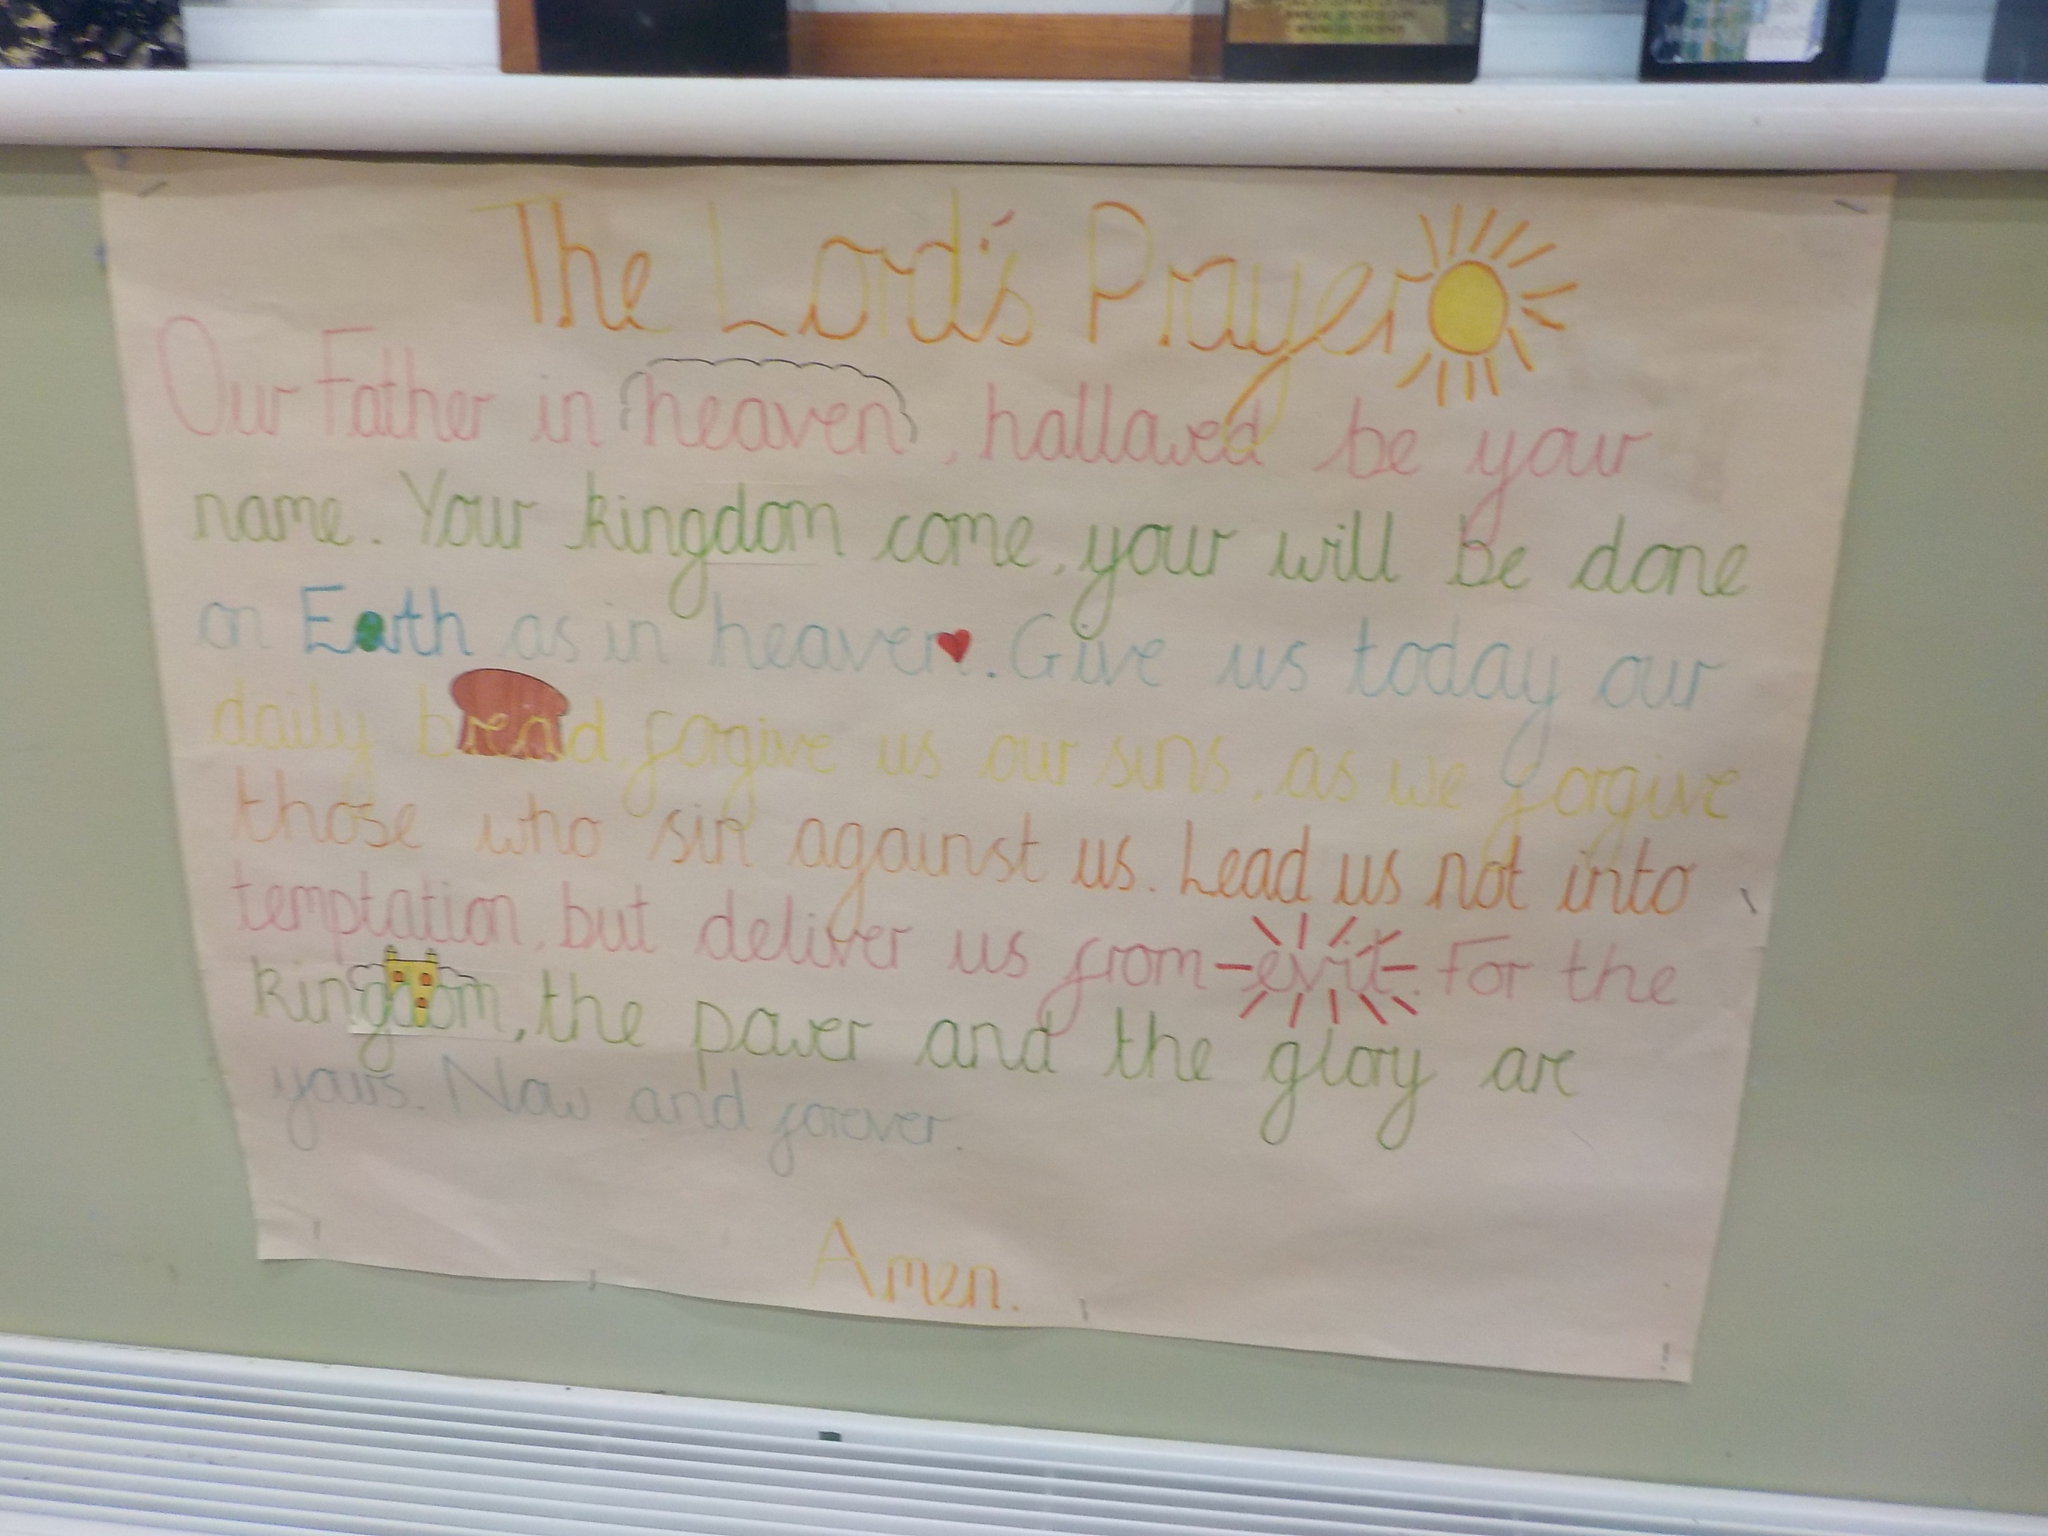 The Lord's Prayer
Our Father in heaven, hallowed be your
name. Your kingdom come, your will be done
on Earth as in heaven. Give us today our
daily bread, forgive us our sins, as we forgive
those who sin against us. Lead us not into
temptation, but deliver us from evil. For the
kingdom, the power and the glory are
yours. Now and forever.
Amen.